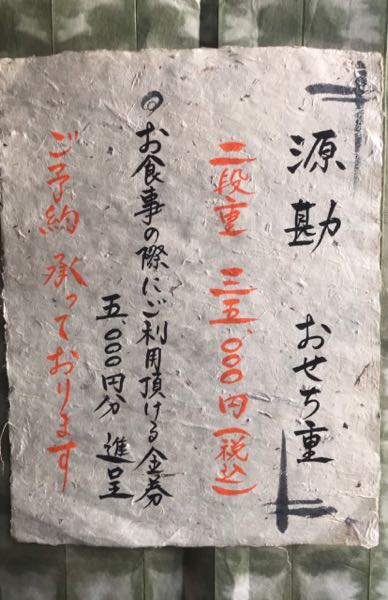 源勘 おせち重
二段重 三五、〇〇〇円(税込)
◎お食事の際にご利用頂ける金券
五、〇〇〇円分 進呈
ご予約 承っております